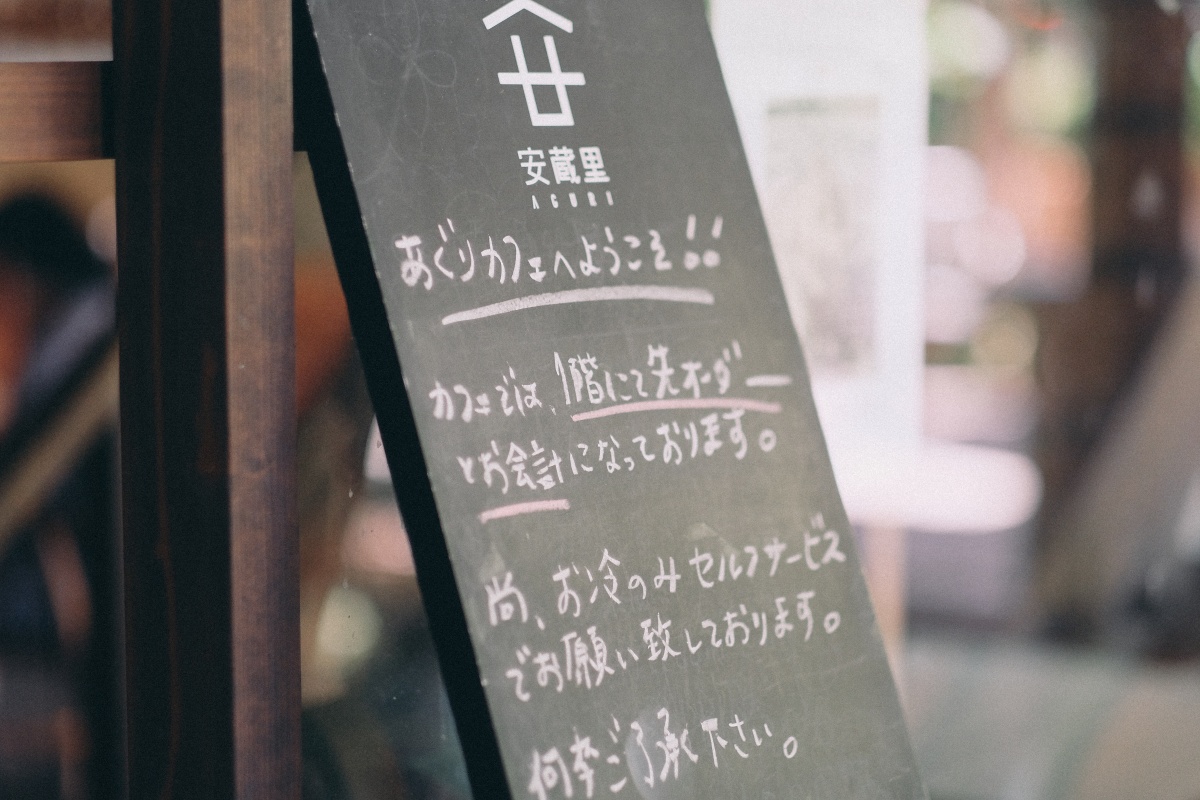 安蔵里
AGURI
あぐりカフェへようこそ!!
カフェでは、1階にて先オーダー
とお会計になっております。
尚、お冷のみセルフサービス
でお願い致しております。
何卒ご了承下さい。